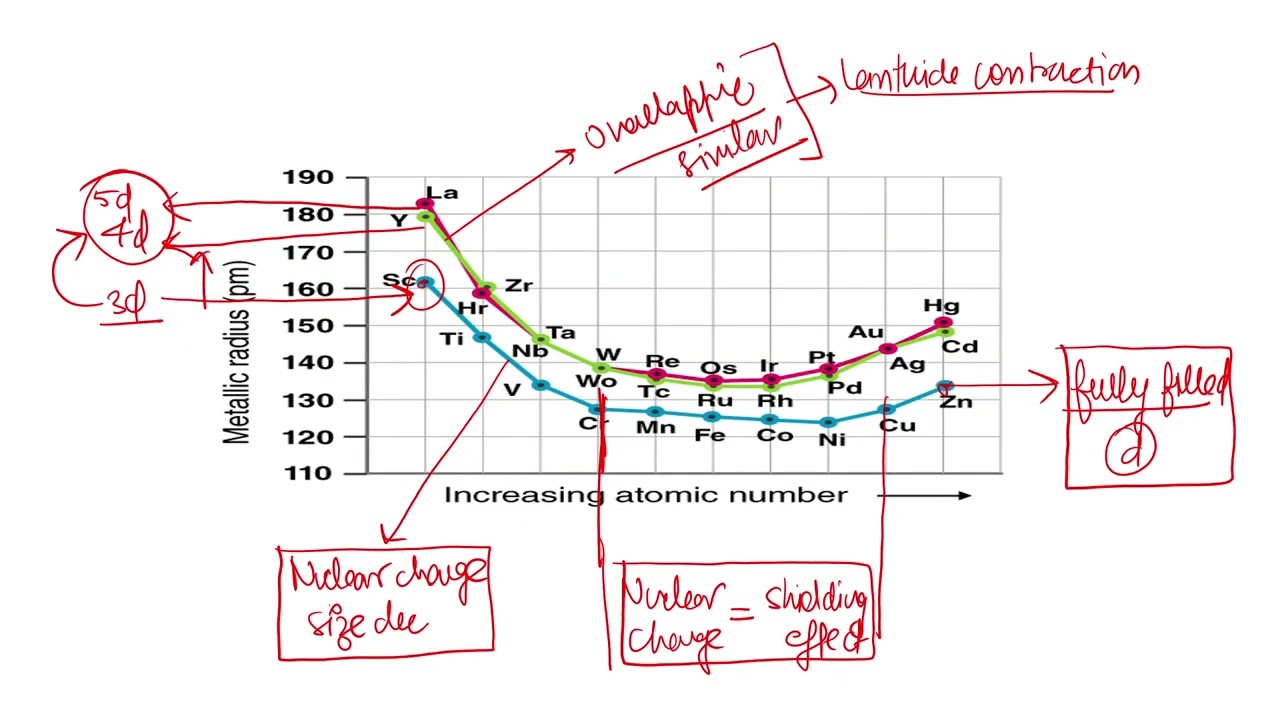 Overlappic
similar
Lanthide contraction
5d
4d
3d
190
180
170
160
150
140
130
120
110
Metallic radius (pm)
La
Y
Sc
Zr
Hr
Ti
Ta
Nb
V
W
Wo
Cr
Re
Tc
Mn
Os
Ru
Fe
Ir
Rh
Co
Pt
Pd
Ni
Au
Ag
Cu
Hg
Cd
Zn
Increasing atomic number
fully filled
d
Nuclear charge
size dec
Nuclear = shielding
charge effect